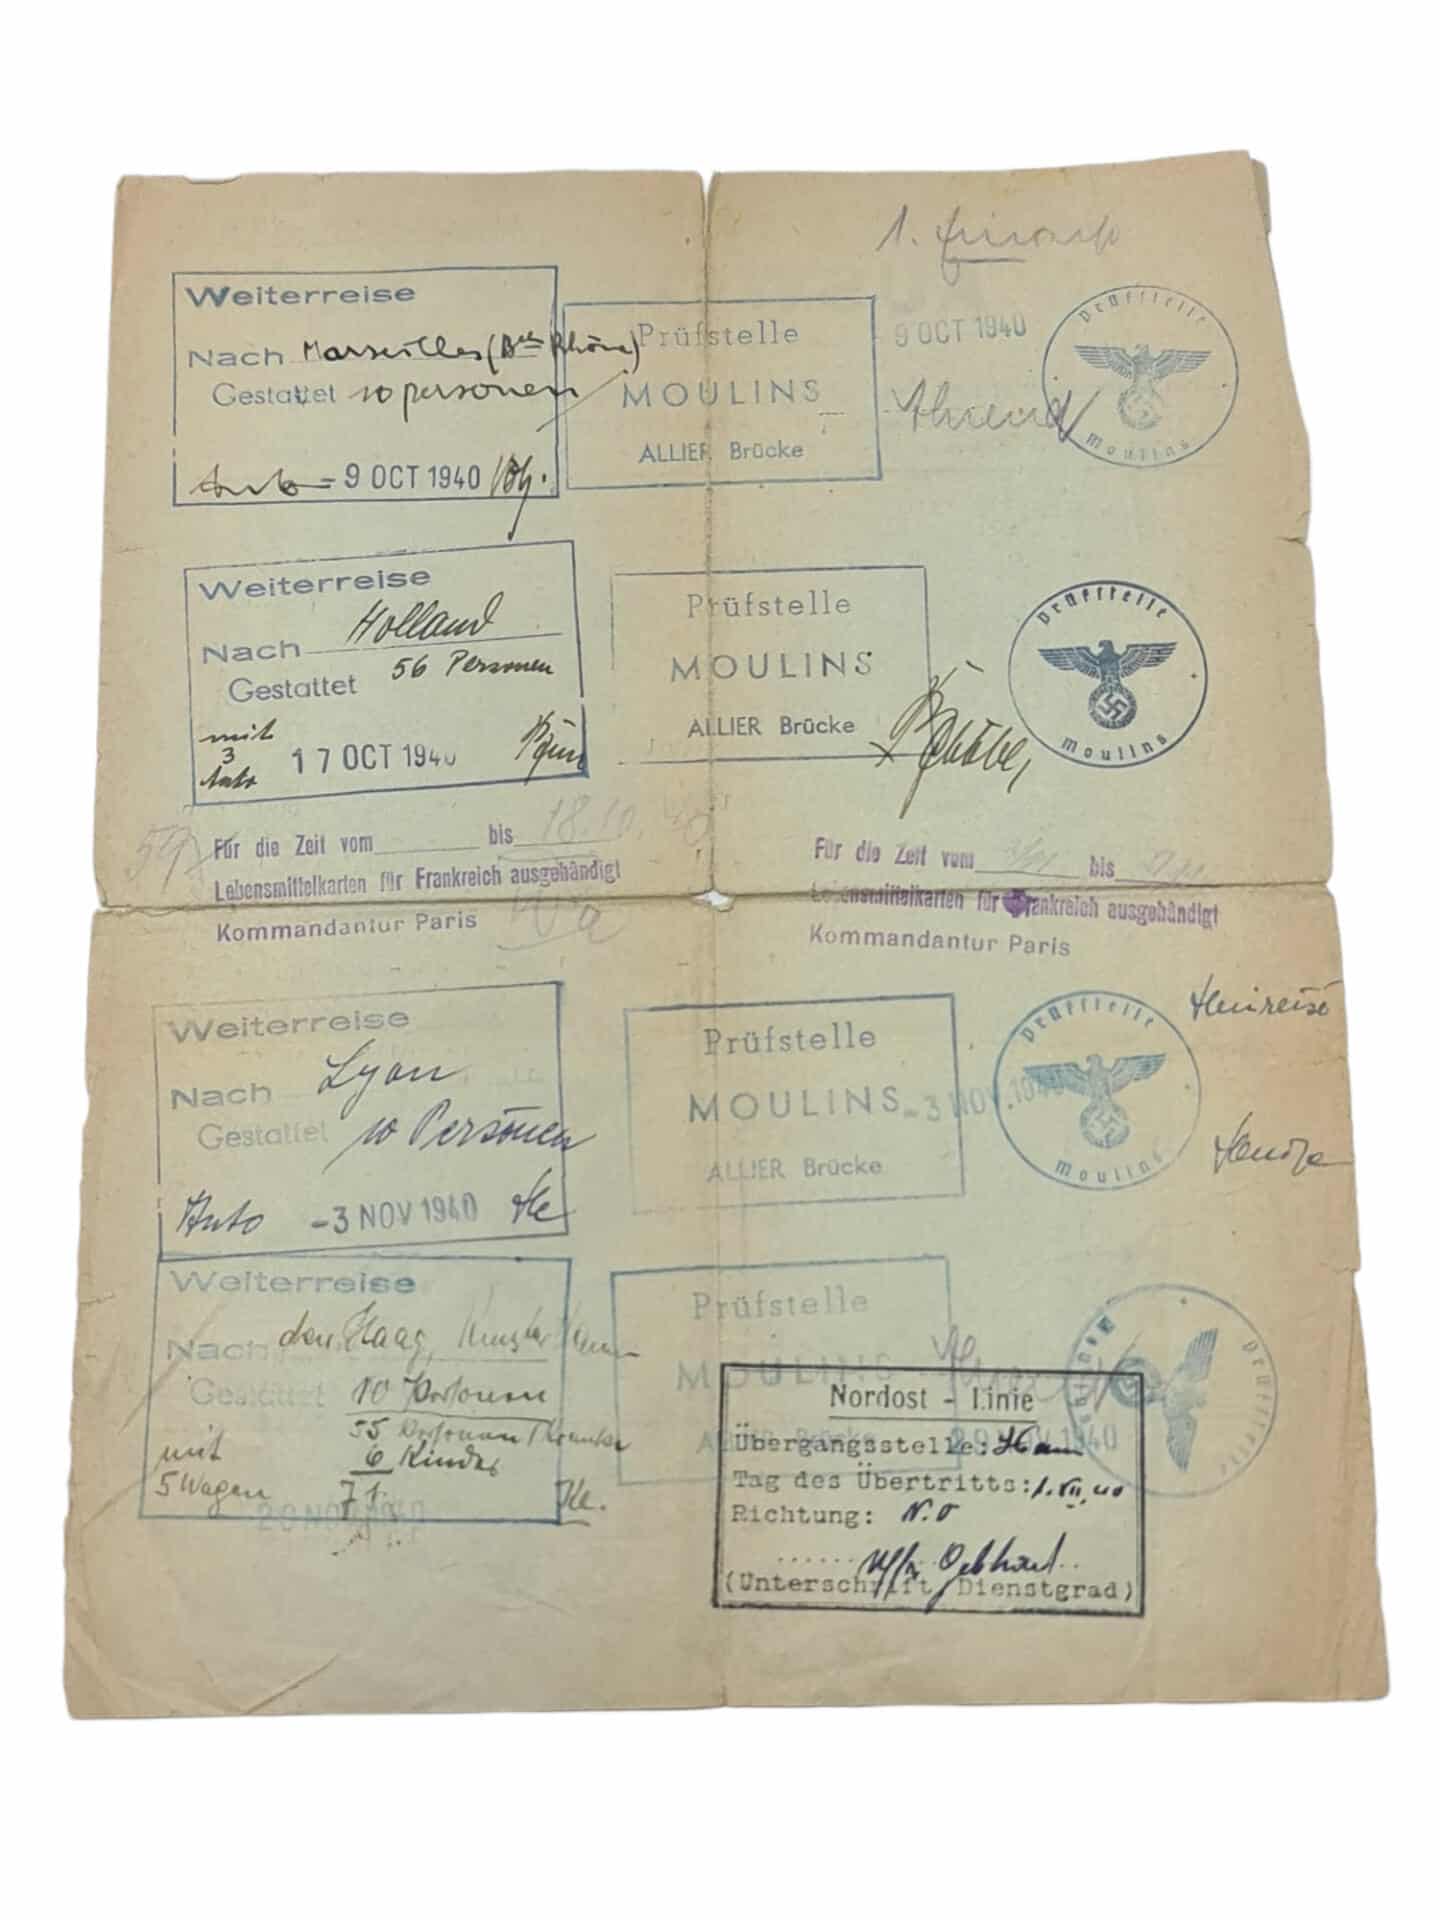 1.
Weiterreise
Nach Marseilles (Bches Rhône)
Gestattet 10 personen
Auto - 9 OCT 1940
Prüfstelle
MOULINS
ALLIER Brücke
9 OCT 1940
Prüfstelle
Moulins
Weiterreise
Nach Holland
Gestattet 56 Personen
mit
3
Auto
17 OCT 1940
Prüfstelle
MOULINS
ALLIER Brücke
Prüfstelle
Moulins
Für die Zeit vom bis 18.10.40
Lebensmittelkarten für Frankreich ausgehändigt
Kommandantur Paris
Für die Zeit vom bis
Lebensmittelkarten für Frankreich ausgehändigt
Kommandantur Paris
Weiterreise
Nach Lyon
Gestattet 10 Personen
Auto -3 NOV 1940
Prüfstelle
MOULINS
ALLIER Brücke
-3 NOV. 1940
Prüfstelle
Moulins
Weiterreise
Nach den Haag,
Gestattet 10 Personen
55 Personen
mit 6 Kinder
5 Wagen 71
NOV 1940
Prüfstelle
MOULINS
ALLIER Brücke
NOV 1940
Prüfstelle
Moulins
Nordost - Linie
Übergangsstelle: Ham
Tag des Übertritts: 1. XII. 40
Richtung: N.O
(Unterschrift, Dienstgrad)